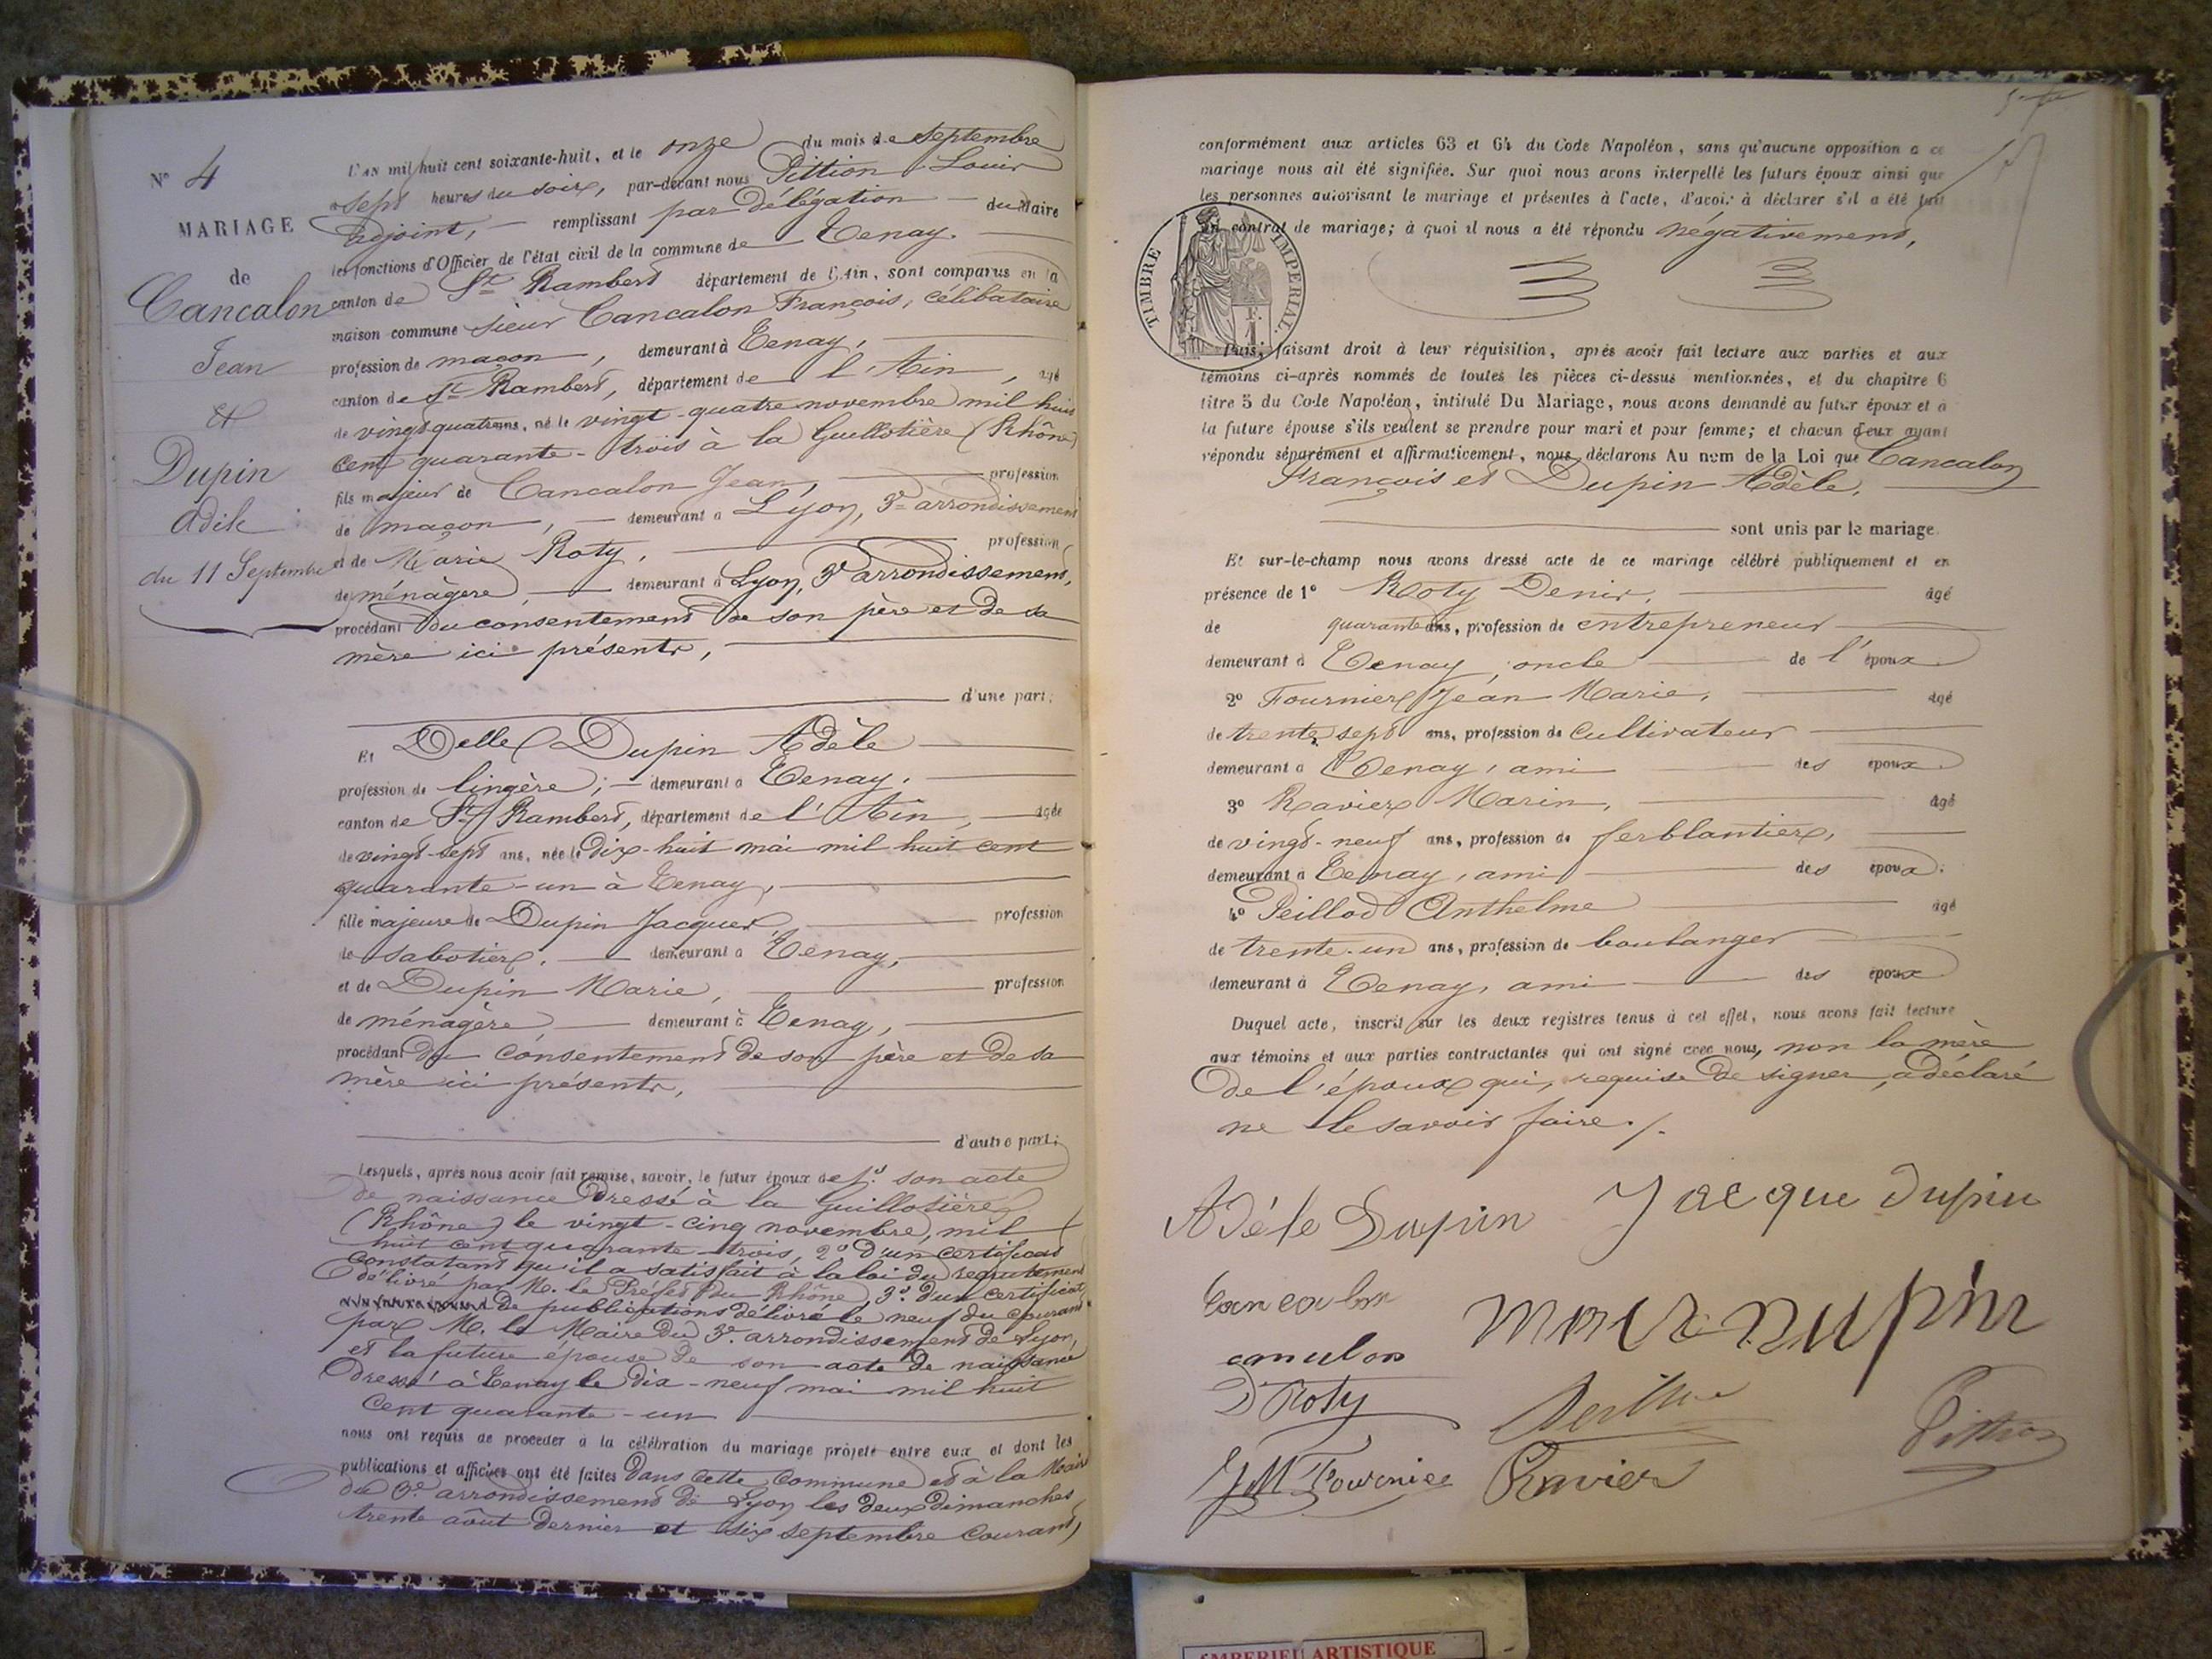 N° 4
MARIAGE
de
Cancalon
Jean
et
Dupin
Adèle
du 11 Septembre
L'AN mil huit cent soixante-huit, et le onze du mois de septembre
à sept heures du soir, par-devant nous Pittion Louis
adjoint, remplissant par délégation du Maire
les fonctions d'Officier de l'état civil de la commune de Tenay.
canton de St Rambert département de l'Ain, sont comparus en la
maison commune sieur Cancalon François, célibataire
profession de maçon, demeurant à Tenay,
canton de St Rambert, département de l'Ain, agé
de vingt quatre ans, né le vingt-quatre novembre mil huit
cent quarante-trois à la Guillotière (Rhône)
fils majeur de Cancalon Jean, profession
de maçon, demeurant à Lyon, 3e arrondissement
et de Marie Roty, profession
de ménagère, demeurant à Lyon, 3e arrondissement,
procédant du consentement de son père et de sa
mère ici présents,
d'une part;
Et Delle Dupin Adèle
profession de lingère; demeurant à Tenay,
canton de St Rambert, département de l'Ain, agée
de vingt-sept ans, née le dix-huit mai mil huit cent
quarante-un à Tenay,
fille majeure de Dupin Jacques, profession
de sabotier, demeurant à Tenay,
et de Dupin Marie, profession
de ménagère demeurant à Tenay,
procédant du consentement de son père et de sa
mère ici présents,
d'autre part;
Lesquels, après nous avoir fait remise, savoir, le futur époux de 1° son acte
de naissance dressé à la Guillotière
(Rhône) le vingt-cinq novembre, mil
huit cent quarante-trois, 2° d'un certificat
constatant qu'il a satisfait à la loi du recrutement
délivré par M. le Préfet du Rhône, 3° d'un certificat
de publications délivré le neuf du courant
par M. le Maire du 3e arrondissement de Lyon,
et la future épouse de son acte de naissance
dressé à Tenay le dix-neuf mai mil huit
cent quarante-un
nous ont requis de procéder à la célébration du mariage projeté entre eux et dont les
publications et affiches ont été faites dans cette commune et à la Mairie
du 3e arrondissement de Lyon les deux dimanches
trente août dernier et six septembre courant,
conformément aux articles 63 et 64 du Code Napoléon, sans qu'aucune opposition à ce
mariage nous ait été signifiée. Sur quoi nous avons interpellé les futurs époux ainsi que
les personnes autorisant le mariage et présentes à l'acte, d'avoir à déclarer s'il a été fait
un contrat de mariage; à quoi il nous a été répondu négativement,
TIMBRE IMPERIAL.
1 F.
Puis, faisant droit à leur réquisition, après avoir fait lecture aux parties et aux
témoins ci-après nommés de toutes les pièces ci-dessus mentionnées, et du chapitre 6
titre 5 du Code Napoléon, intitulé Du Mariage, nous avons demandé au futur époux et à
la future épouse s'ils veulent se prendre pour mari et pour femme; et chacun d'eux ayant
répondu séparément et affirmativement, nous déclarons Au nom de la Loi que Cancalon
François et Dupin Adèle,
sont unis par le mariage.
Et sur-le-champ nous avons dressé acte de ce mariage célébré publiquement et en
présence de 1° Roty Denis, âgé
de quarante ans, profession de entrepreneur
demeurant à Tenay, oncle de l'époux.
2° Fournier Jean Marie, agé
de trente sept ans, profession de cultivateur
demeurant à Tenay, ami des époux.
3° Ravier Marin, âgé
de vingt-neuf ans, profession de ferblantier,
demeurant à Tenay, ami des époux.
4° Peillod Anthelme agé
de trente-un ans, profession de boulanger
demeurant à Tenay, ami des époux
Duquel acte, inscrit sur les deux registres tenus à cet effet, nous avons fait lecture
aux témoins et aux parties contractantes qui ont signé avec nous, non la mère
de l'époux qui, requise de signer, a déclaré
ne le savoir faire./.
Adèle Dupin Jacque dupin
Cancalon
Dupin
D Roty
Pittion
JM Fournier Ravier
ARTISTIQUE